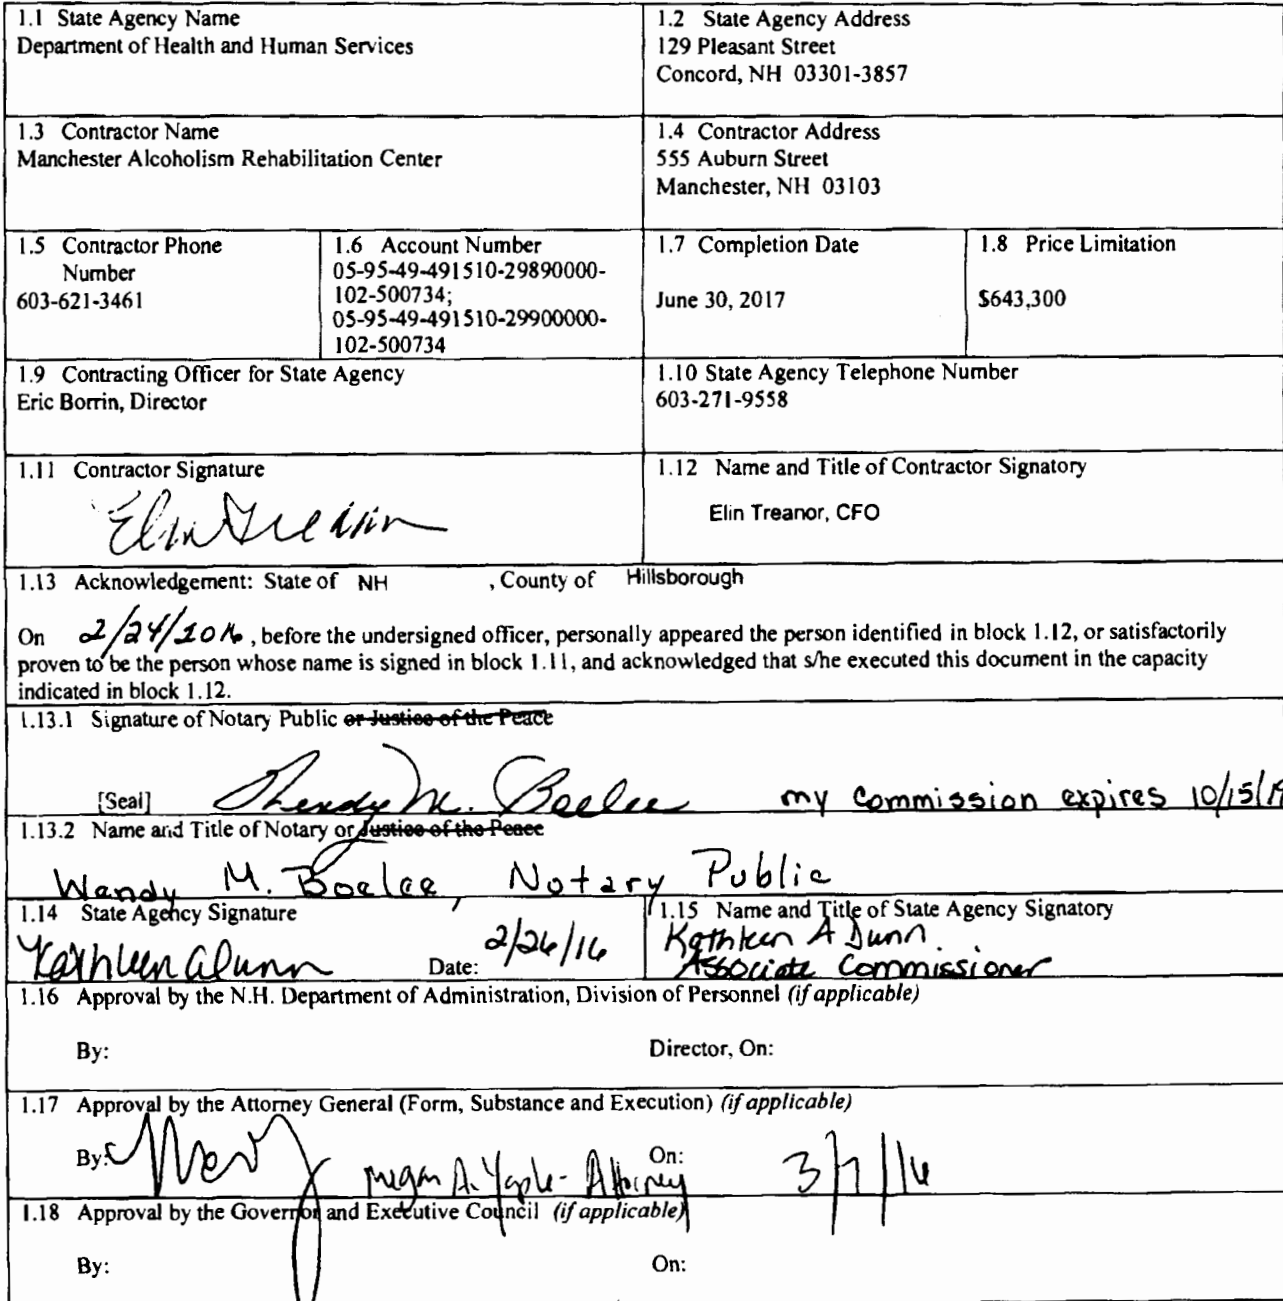 1.1 State Agency Name
Department of Health and Human Services
1.2 State Agency Address
129 Pleasant Street
Concord, NH 03301-3857
1.3 Contractor Name
Manchester Alcoholism Rehabilitation Center
1.4 Contractor Address
555 Auburn Street
Manchester, NH 03103
1.5 Contractor Phone
Number
603-621-3461
1.6 Account Number
05-95-49-491510-29890000-
102-500734;
05-95-49-491510-29900000-
102-500734
1.7 Completion Date
June 30, 2017
1.8 Price Limitation
$643,300
1.9 Contracting Officer for State Agency
Eric Borrin, Director
1.10 State Agency Telephone Number
603-271-9558
1.11 Contractor Signature
Elin Treanor
1.12 Name and Title of Contractor Signatory
Elin Treanor, CFO
1.13 Acknowledgement: State of NH , County of Hillsborough
On 2/24/2016, before the undersigned officer, personally appeared the person identified in block 1.12, or satisfactorily
proven to be the person whose name is signed in block 1.11, and acknowledged that s/he executed this document in the capacity
indicated in block 1.12.
1.13.1 Signature of Notary Public or Justice of the Peace
[Seal] M. Boelee my commission expires 10/15/19
1.13.2 Name and Title of Notary or Justice of the Peace
Wendy M. Boelee, Notary Public
1.14 State Agency Signature
Kathleen A Dunn Date: 2/26/16
1.15 Name and Title of State Agency Signatory
Kathleen A Dunn
Associate Commissioner
1.16 Approval by the N.H. Department of Administration, Division of Personnel (if applicable)
By: Director, On:
1.17 Approval by the Attorney General (Form, Substance and Execution) (if applicable)
By: Megan A. Yaple - Attorney On: 3/7/16
1.18 Approval by the Governor and Executive Council (if applicable)
By: On: